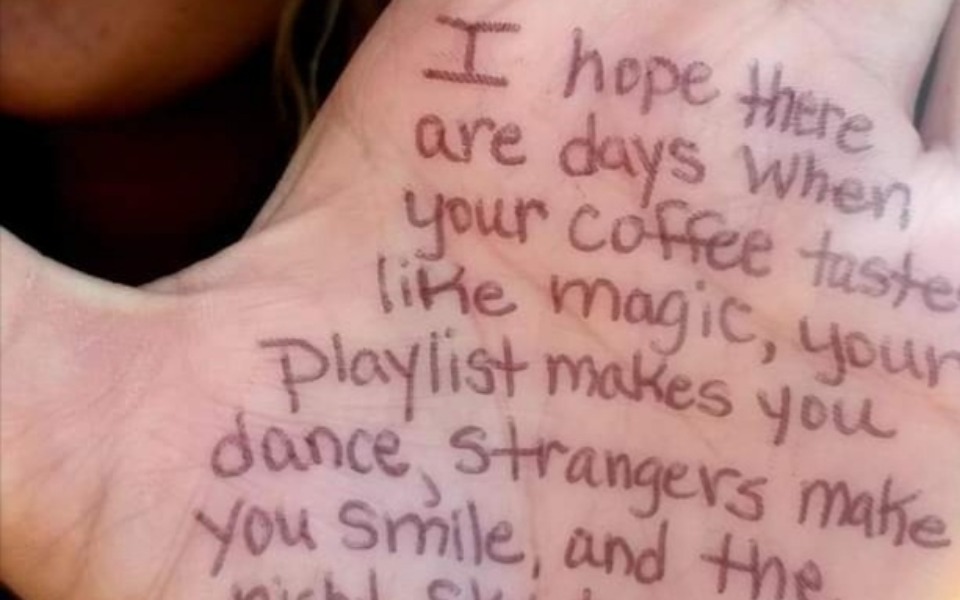 I hope there
are days when
your coffee taste
like magic, your
playlist makes you
dance, strangers make
you smile, and the
night sky